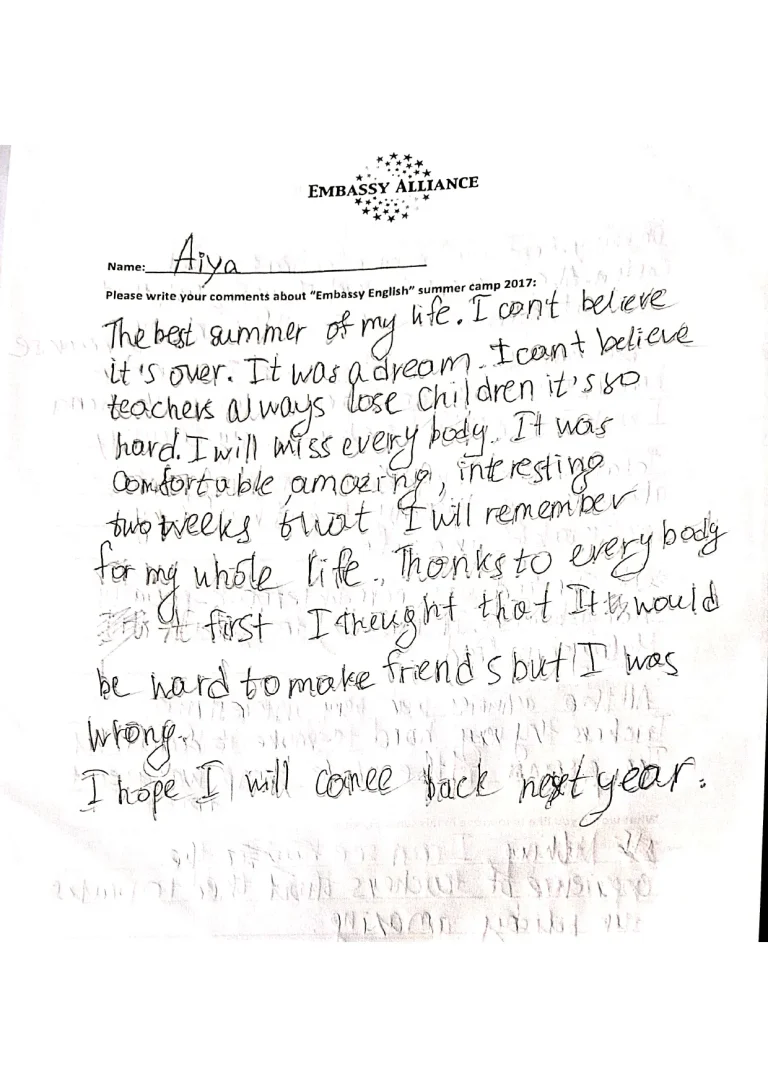 EMBASSY ALLIANCE
Name: Aiya
Please write your comments about "Embassy English" summer camp 2017:
The best summer of my life. I can't believe
it's over. It was a dream. I can't believe
teachers always lose children it's so
hard. I will miss every body. It was
comfortable, amazing, interesting
two weeks that I will remember
for my whole life. Thanks to every body
first I thought that It would
be hard to make friends but I was
wrong.
I hope I will conee back next year.